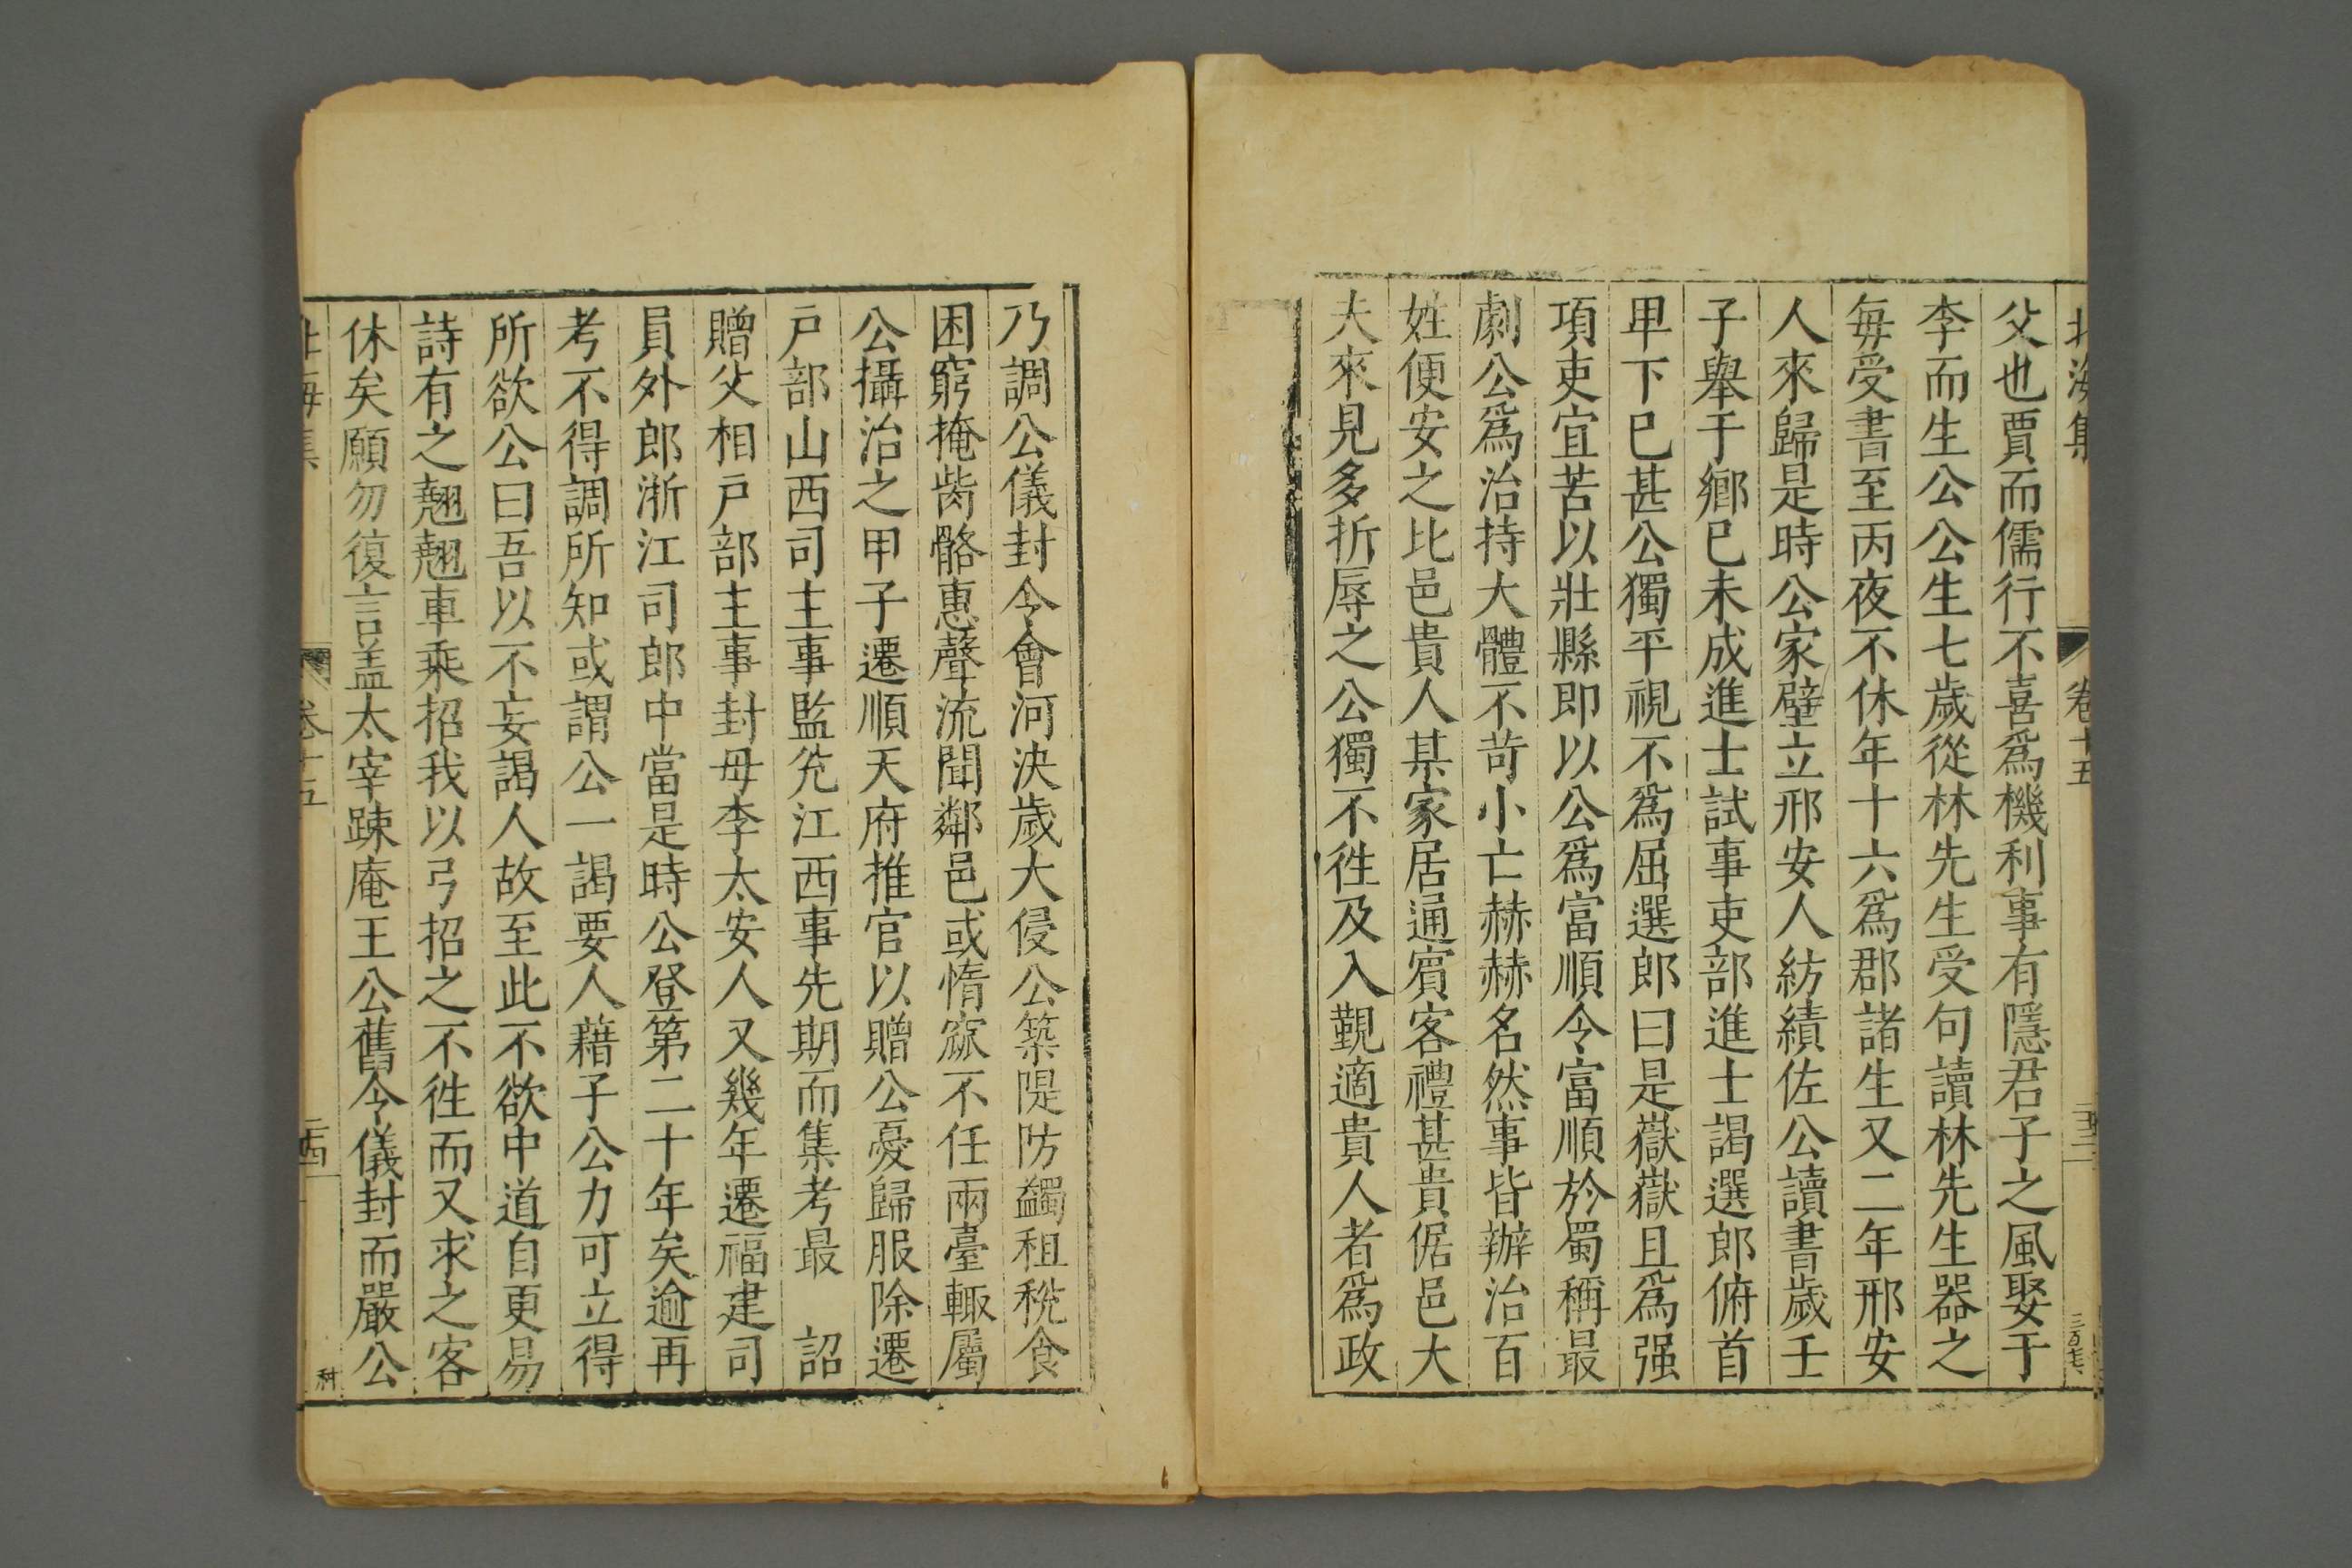 北海集 卷十五
父也賈而儒行不喜爲機利事有隱君子之風娶于
李而生公公生七歲從林先生受句讀林先生器之
每受書至丙夜不休年十六爲郡諸生又二年邢安
人來歸是時公家壁立邢安人紡績佐公讀書歲壬
子舉于鄉巳未成進士試事吏部進士謁選郎俯首
甲下巳甚公獨平視不爲屈選郎曰是嶽嶽且爲强
項吏宜苦以壯縣即以公爲富順令富順於蜀稱最
劇公爲治持大體不苛小亡赫赫名然事皆辦治百
姓便安之比邑貴人某家居通賓客禮甚貴倨邑大
夫來見多折辱之公獨不徃及入覲適貴人者爲政
乃調公儀封令會河決歲大侵公築隄防蠲租稅食
困窮掩胔骼惠聲流聞鄰邑或惰窳不任兩臺輙屬
公攝治之甲子遷順天府推官以贈公憂歸服除遷
戸部山西司主事監兊江西事先期而集考最 詔
贈父相戸部主事封母李太安人又幾年遷福建司
員外郎浙江司郎中當是時公登第二十年矣逾再
考不得調所知或謂公一謁要人藉子公力可立得
所欲公曰吾以不妄謁人故至此不欲中道自更易
詩有之翹翹車乘招我以弓招之不徃而又求之客
休矣願勿復言盖太宰踈庵王公舊令儀封而嚴公
北海集 卷十五